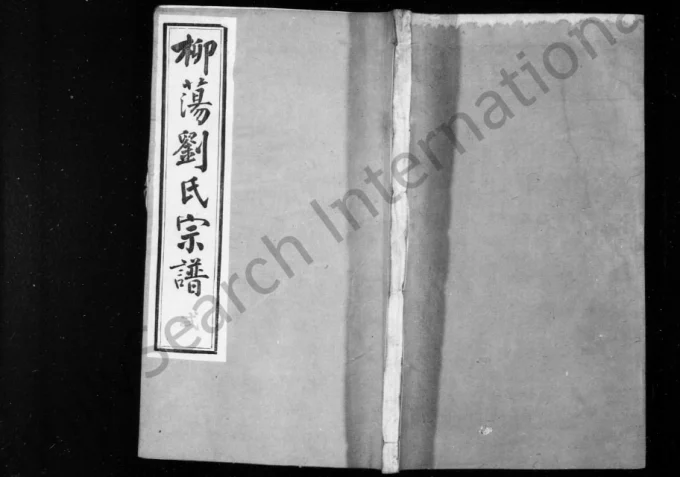 柳蕩劉氏宗譜
Search International